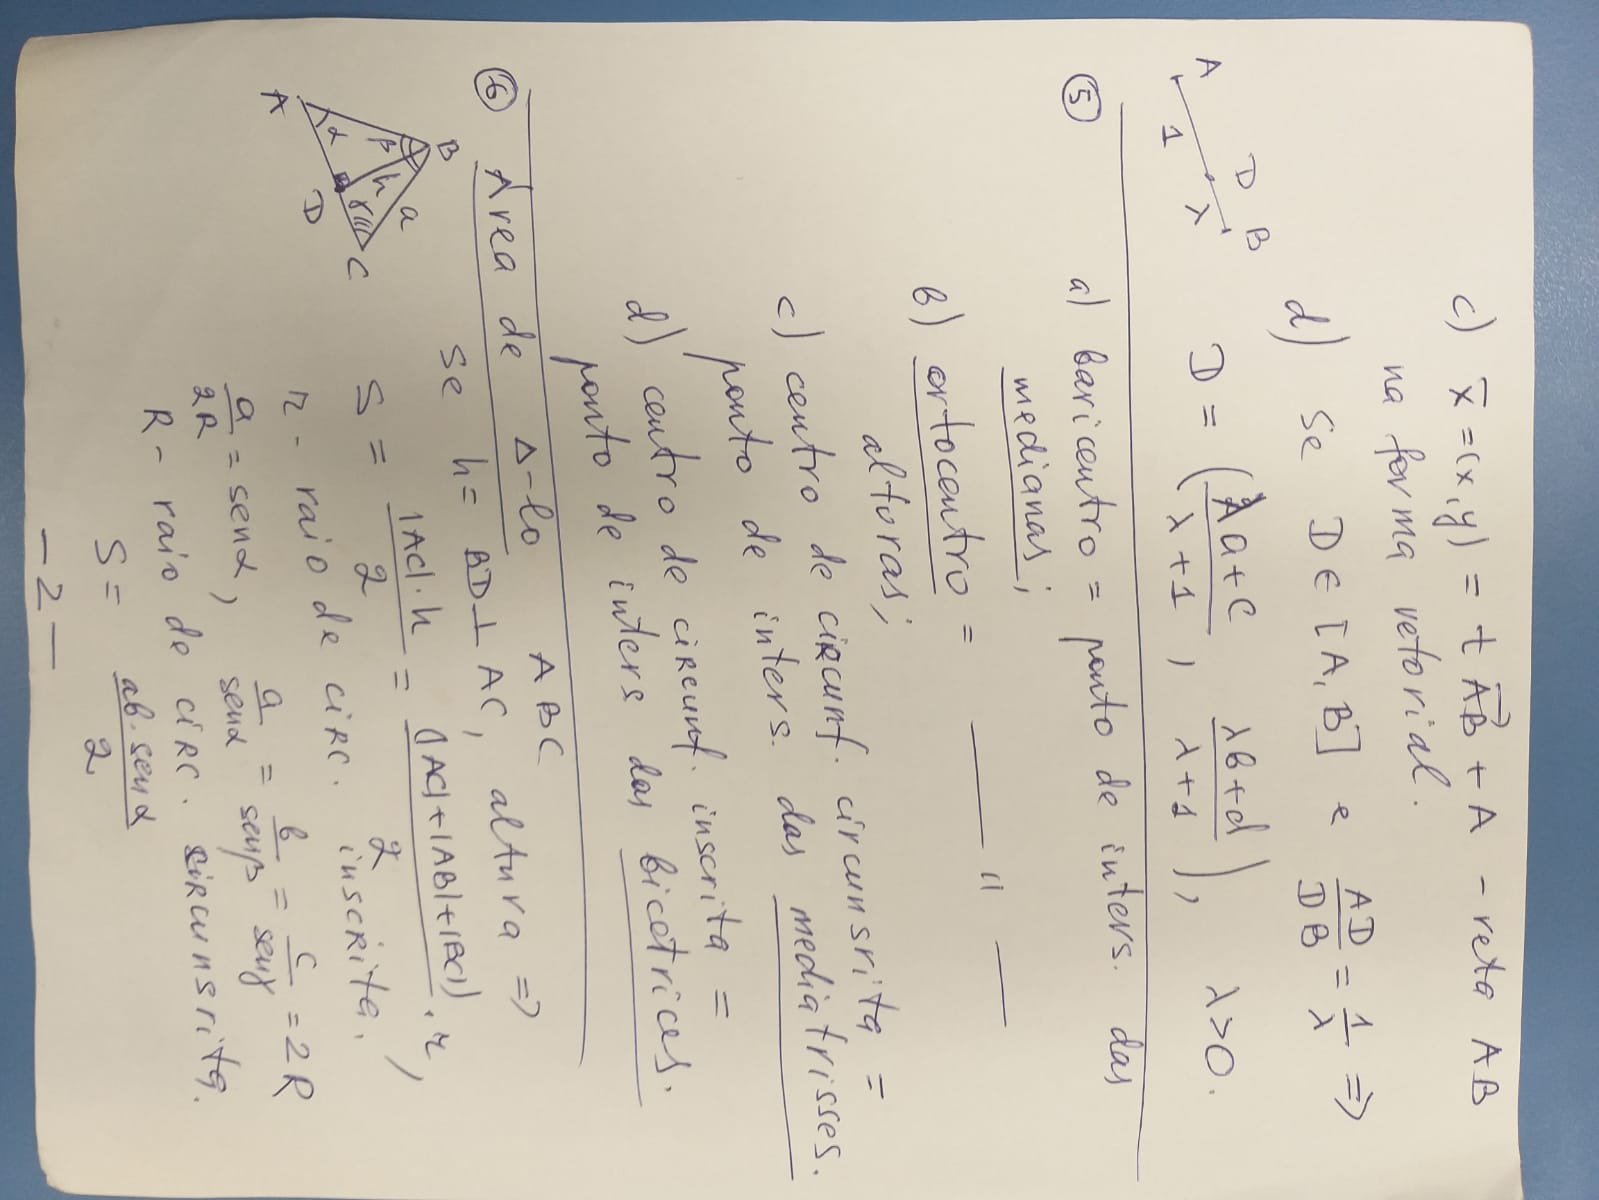 c) x̄ = (x, y) = t AB⃗ + A - reta AB
na forma vetorial.
d) Se D ∈ [A, B] e AD/DB = 1/λ ⇒
A D B
1 λ
D = ((λa+c)/(λ+1), (λb+d)/(λ+1)), λ>0.
⑤ a) baricentro = ponto de inters. das
medianas;
b) ortocentro = —— " ——
alturas;
c) centro de circunf. circunsrita =
ponto de inters. das mediatrisses.
d) centro de circunf. inscrita =
ponto de inters das bicetrices.
⑥ Area de Δ-lo ABC
Se h = BD ⊥ AC, altura ⇒
A B C D α β γ h a
S = |AC|·h/2 = (|AC|+|AB|+|BC|)/2 · r,
r - raio de circ. inscrita.
a/2R = senα, a/senα = b/senβ = c/senγ = 2R
R - raio de circ. circunsrita.
S = ab·senα/2
- 2 -